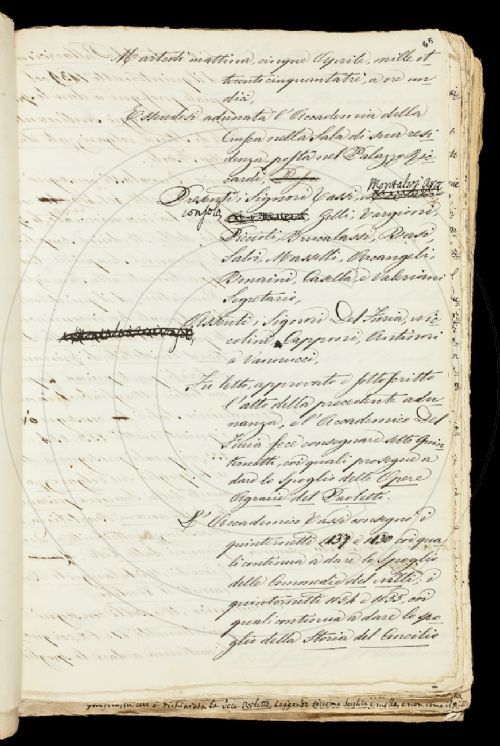 68
Martedì mattina, cinque Aprile, mille ot
tocento cinquantatrè, a ore un
dici.
Essendosi adunata l'Accademia della
Crusca nella Sala di sua resi
denza, posta nel Palazzo Ric
cardi,
Presenti, i Signori Cassi, Montalvi Arci
consolo, Gelli, Targioni,
Puccioti, Brucalassi, Basi
Salvi, Masselli, Arcangeli,
Bonaini, Casella, e Valeriani
Segretario,
Assenti, i Signori Del Furia, Nic
colini, Capponi, Antinori
e Vannucci,
Fu letto, approvato e sottoscritto
l'atto della precedente adu
nanza, e l'Accademico Del
Furia fece consegnare sette quin
ternetti, coi quali prosegue a
dare lo spoglio delle Opere
Agrarie del Paoletti.
L'Accademico Cassi consegnò i
quinternetti 1139 e 1130 coi qua
li continua a dare lo spoglio
delle Commedie del Nelli, i
quinternetti 1154 e 1155 coi
quali continua a dare lo spo
glio della Storia del Concilio